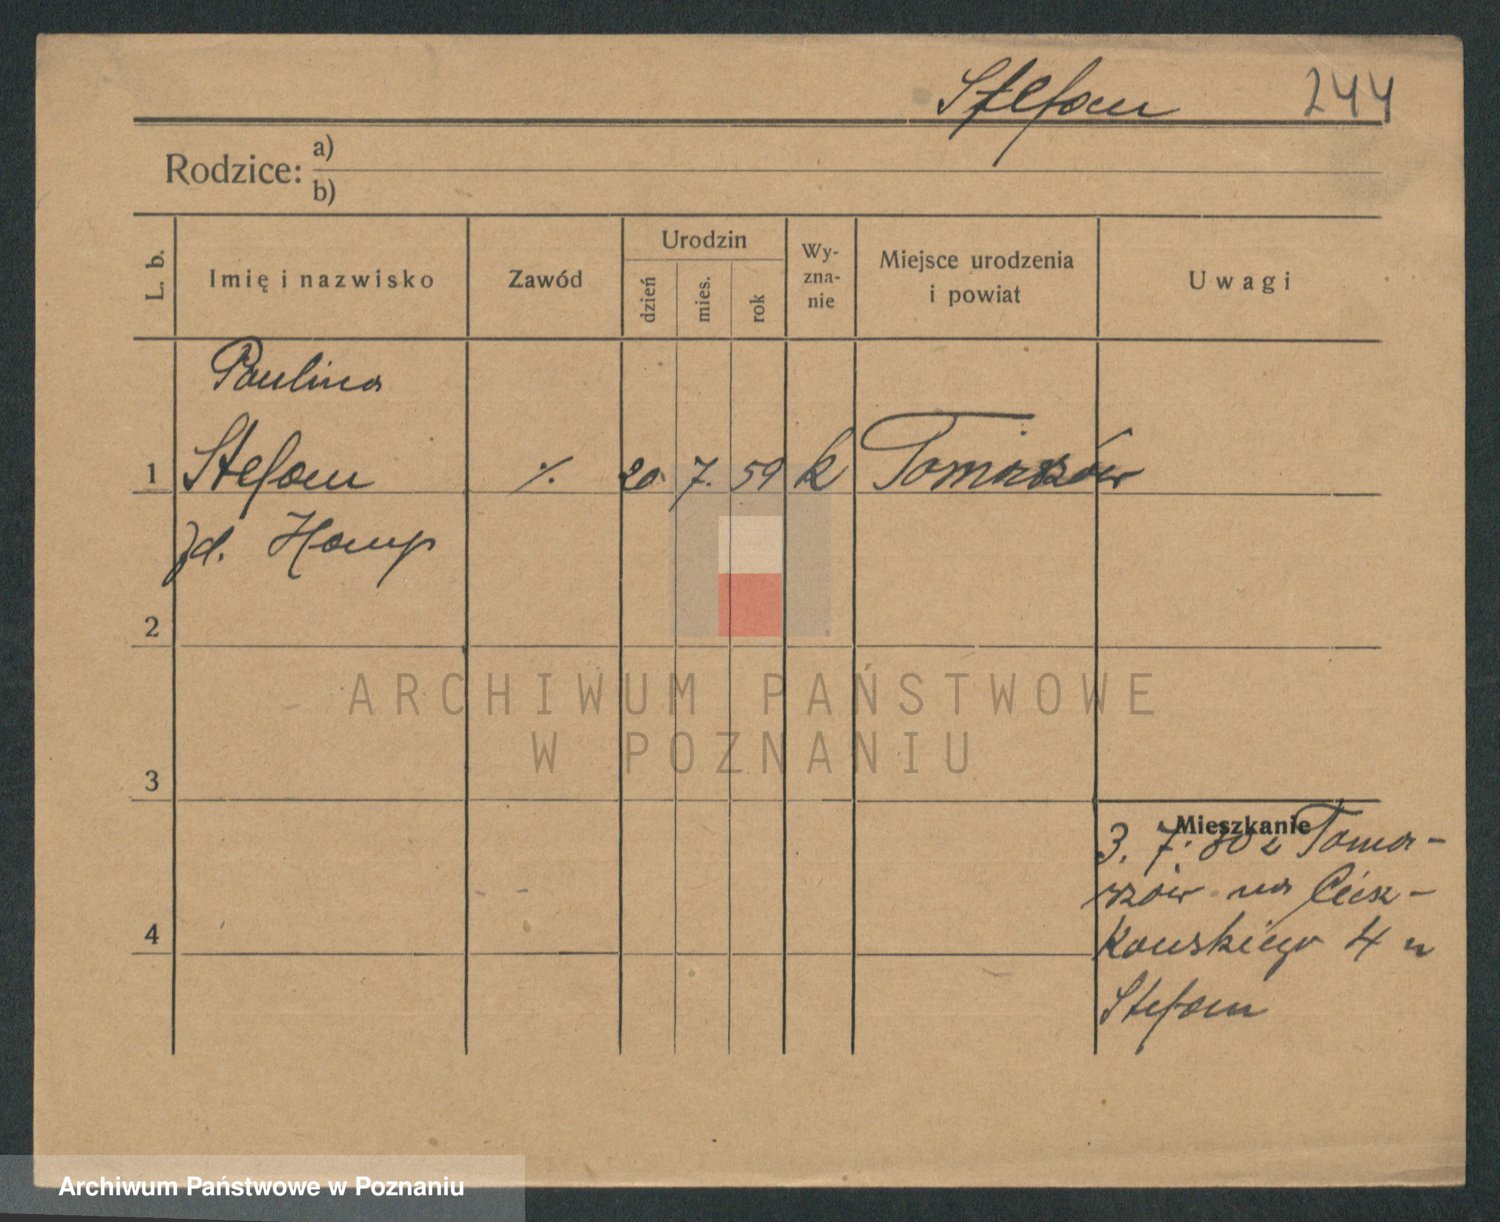 Stefan 244
Rodzice: a)
b)
L. b. Imię i nazwisko Zawód Urodzin dzień mies. rok Wy-zna-nie Miejsce urodzenia i powiat Uwagi
Paulina
1 Stefan ⁒ 20. 7. 59 k Tomaszów
zd. Hamp
2
ARCHIWUM PAŃSTWOWE
W POZNANIU
3
Mieszkanie
3. 7. 30 z Toma-
szów na Ciesz-
kowskiego 4 u
4
Stefan
Archiwum Państwowe w Poznaniu